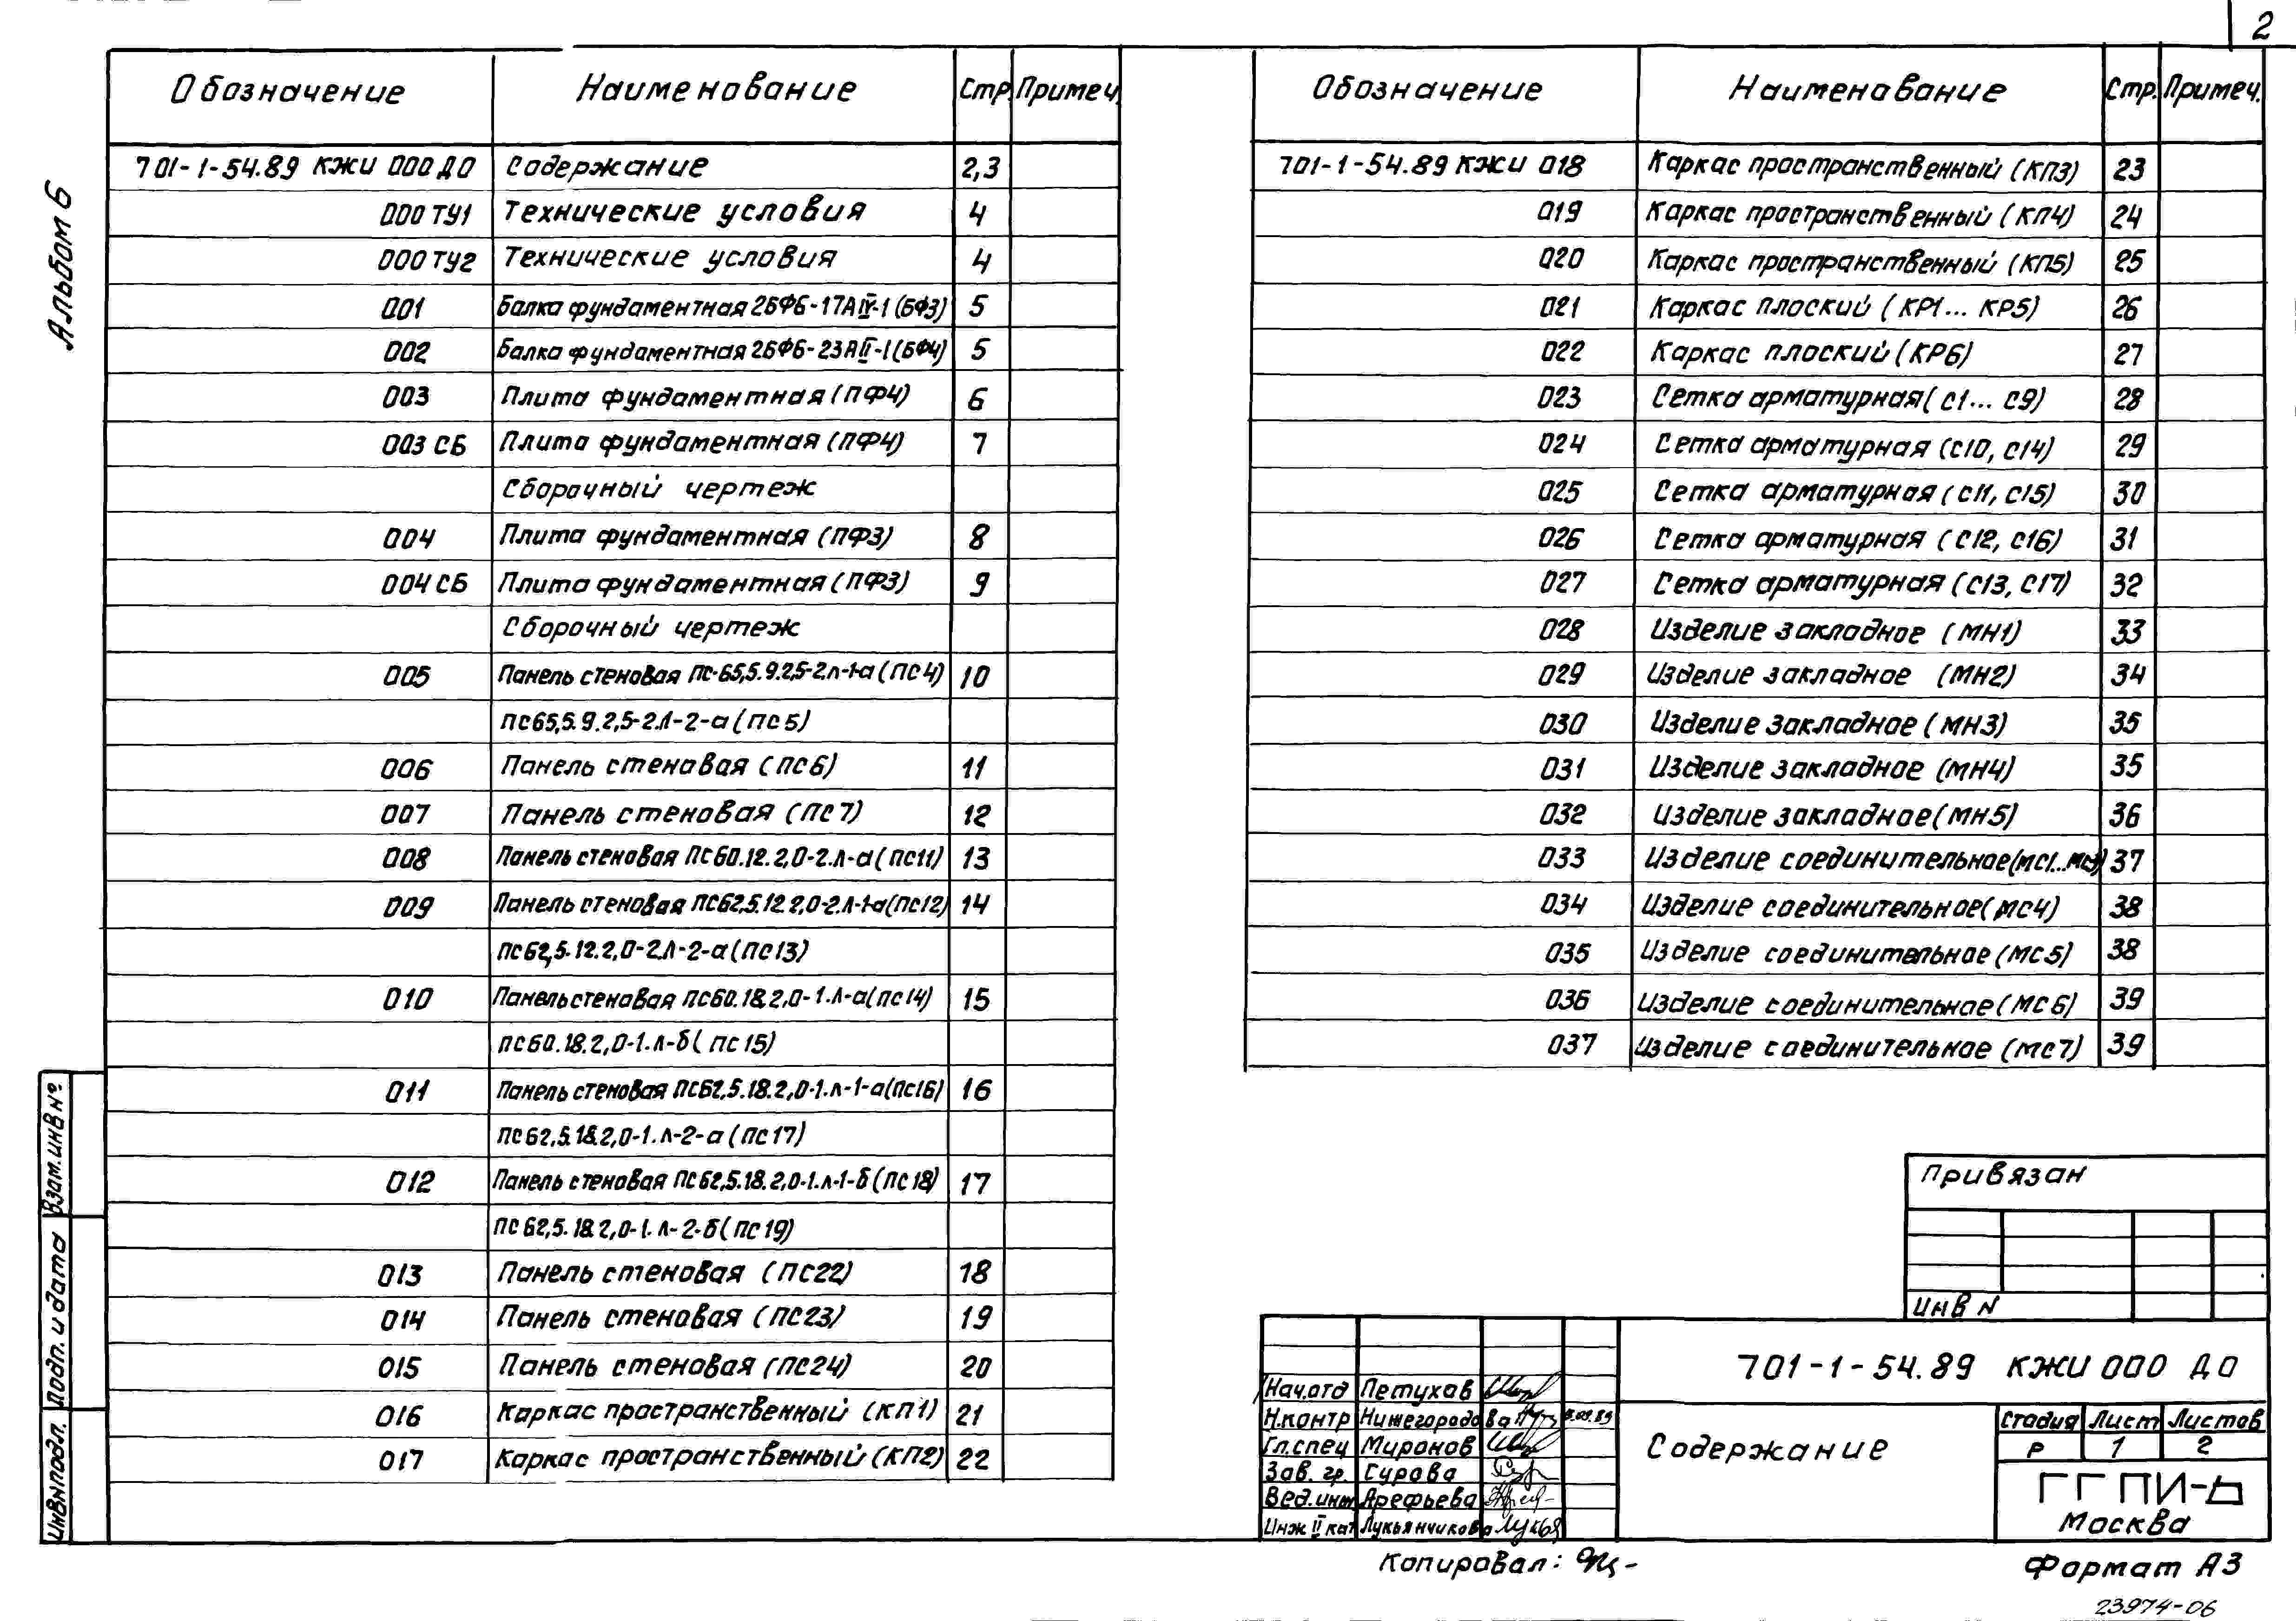 2
Альбом 6
Обозначение Наименование Стр. Примеч.
701-1-54.89 КЖИ 000 ДО Содержание 2,3
000 ТУ1 Технические условия 4
000 ТУ2 Технические условия 4
001 Балка фундаментная 2БФ6-17АIV-1 (БФ3) 5
002 Балка фундаментная 2БФ6-23АII-1 (БФ4) 5
003 Плита фундаментная (ПФ4) 6
003 СБ Плита фундаментная (ПФ4) 7
Сборочный чертеж
004 Плита фундаментная (ПФ3) 8
004 СБ Плита фундаментная (ПФ3) 9
Сборочный чертеж
005 Панель стеновая ПС-65,5.9.2,5-2.л-1-а (ПС4) 10
ПС65,5.9.2,5-2.л-2-а (ПС5)
006 Панель стеновая (ПС6) 11
007 Панель стеновая (ПС7) 12
008 Панель стеновая ПС60.12.2,0-2.л-а (ПС11) 13
009 Панель стеновая ПС62,5.12.2,0-2.л-1-а (ПС12) 14
ПС62,5.12.2,0-2.л-2-а (ПС13)
010 Панель стеновая ПС60.18.2,0-1.л-а (ПС14) 15
ПС60.18.2,0-1.л-б (ПС15)
011 Панель стеновая ПС62,5.18.2,0-1.л-1-а (ПС16) 16
ПС62,5.18.2,0-1.л-2-а (ПС17)
012 Панель стеновая ПС62,5.18.2,0-1.л-1-б (ПС18) 17
ПС62,5.18.2,0-1.л-2-б (ПС19)
013 Панель стеновая (ПС22) 18
014 Панель стеновая (ПС23) 19
015 Панель стеновая (ПС24) 20
016 Каркас пространственный (КП1) 21
017 Каркас пространственный (КП2) 22
Обозначение Наименование Стр. Примеч.
701-1-54.89 КЖИ 018 Каркас пространственный (КП3) 23
019 Каркас пространственный (КП4) 24
020 Каркас пространственный (КП5) 25
021 Каркас плоский (КР1... КР5) 26
022 Каркас плоский (КР6) 27
023 Сетка арматурная (С1... С9) 28
024 Сетка арматурная (С10, С14) 29
025 Сетка арматурная (С11, С15) 30
026 Сетка арматурная (С12, С16) 31
027 Сетка арматурная (С13, С17) 32
028 Изделие закладное (МН1) 33
029 Изделие закладное (МН2) 34
030 Изделие закладное (МН3) 35
031 Изделие закладное (МН4) 35
032 Изделие закладное (МН5) 36
033 Изделие соединительное (МС1...МС3) 37
034 Изделие соединительное (МС4) 38
035 Изделие соединительное (МС5) 38
036 Изделие соединительное (МС6) 39
037 Изделие соединительное (МС7) 39
Взам. инв №
Подп. и дата
Инв № подл.
Привязан
Инв N
701-1-54.89 КЖИ 000 ДО
Нач.отд Петухов
Н.контр Нижегородова
Гл.спец Миронов
Зав. гр. Сурова
Вед.инж Арефьева
Инж II кат Лукьянчикова
Содержание
Стадия Лист Листов
Р 1 2
ГГПИ-
Москва
Копировал:
Формат А3
23974-06